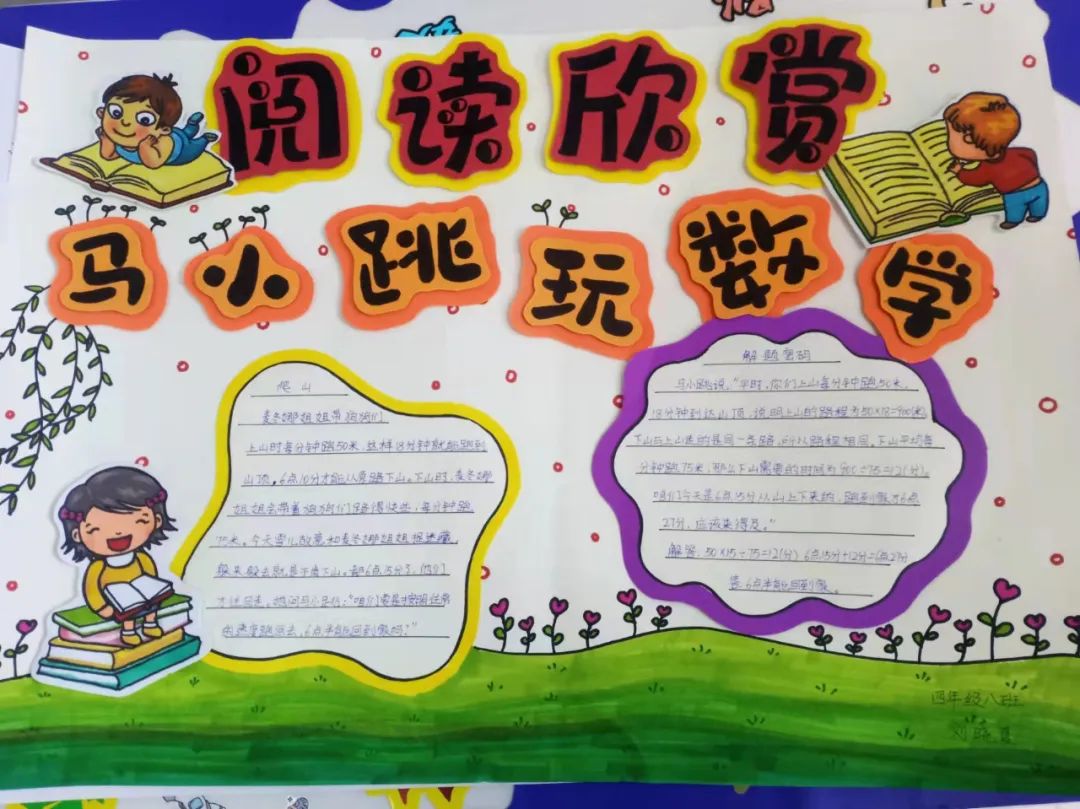 阅读欣赏
马小跳玩数学
爬山
麦冬娜姐姐带狗狗们
上山时每分钟跑50米,这样18分钟就能跑到
山顶。6点10分才能从原路下山。下山时,麦冬娜
姐姐会带着狗狗们跑得快些,每分钟跑
75米。今天雪儿故意和麦冬娜姐姐捉迷藏,
躲来躲去就是不肯下山。都6点15分了,
的速度跑回去,6点半能回到家吗?"
解题密码
马小跳说:"平时,你们上山每分钟跑50米,
18分钟到达山顶,说明上山的路程为50×18=900(米)
下山与上山走的是同一条路,所以路程相同。下山平均每
分钟跑75米,那么下山需要的时间为900÷75=12(分)。
咱们今天是6点15分从山上下来的,跑到家为6点
27分,应该来得及。"
解答:50×15÷75=12(分) 6点15分+12分=6点27分
答:6点半能回到家。
四年级八班